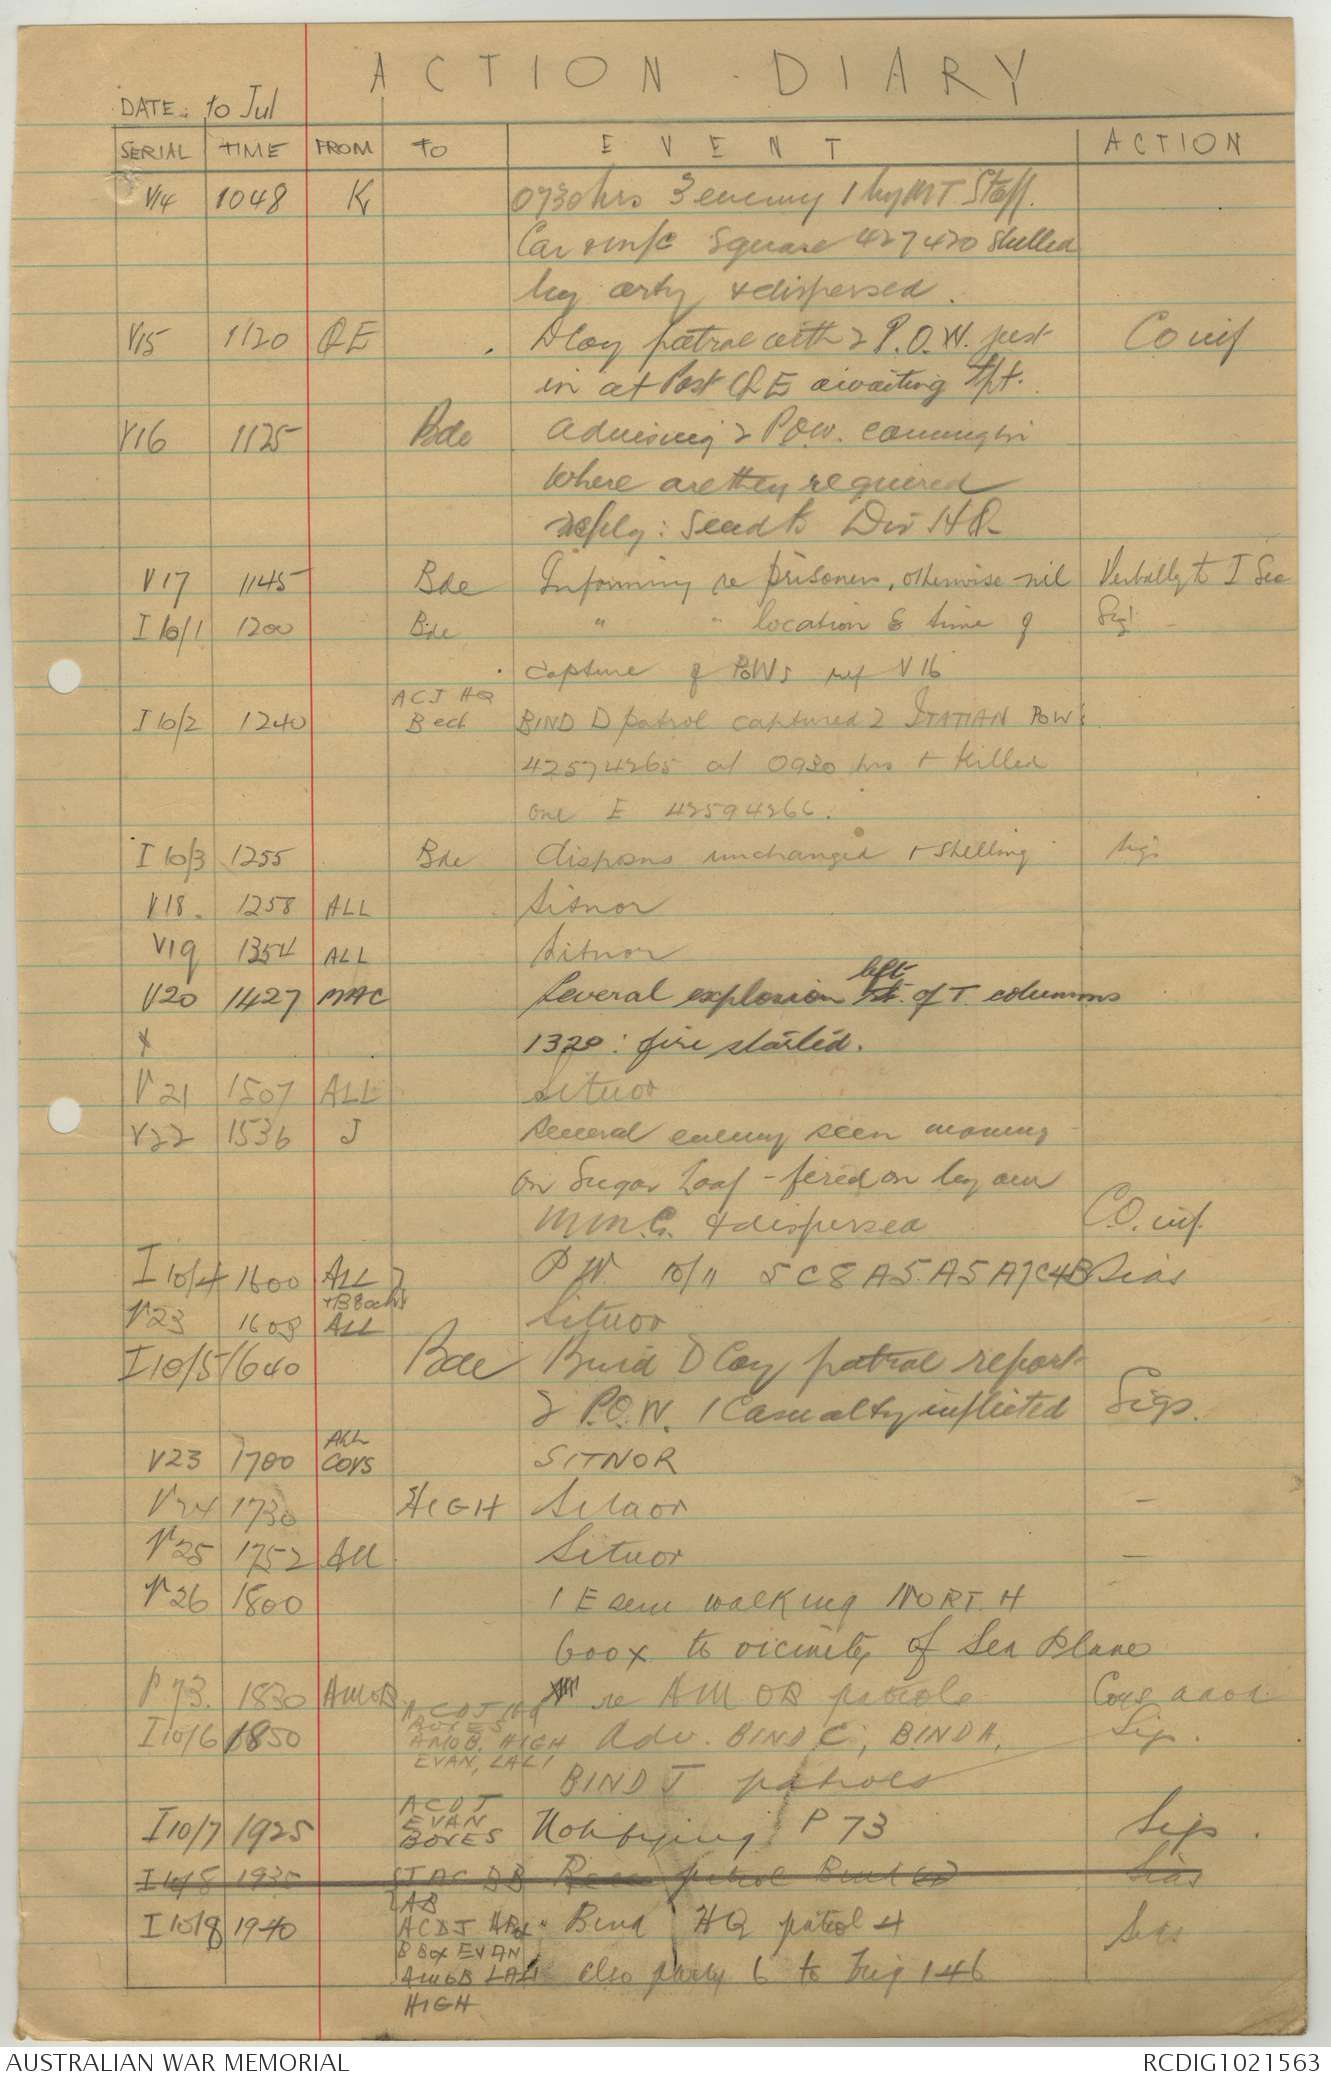 ACTION DIARY
DATE: 10 Jul
SERIAL TIME FROM TO EVENT ACTION
V14 1048 K 0730hrs 3 enemy 1 hy MT. Staff.
Car & m/c square 427420 shelled
by arty & dispersed.
V15 1120 QE D Coy patrol with 2 P.O.W. just CO inf
in at Post QE awaiting tpt.
V16 1125 Bde advising 2 P.O.W. coming in
Where are they required
reply: Send to Div HQ
V17 1145 Bde Informing re prisoners, otherwise nil Verbally to I Sec
I 10/1 1200 Bde " " location & time of Sigs
capture of POWs ref V16
ACJ HQ
I 10/2 1240 B ech BIND D patrol captured 2 ITATIAN POWs
42574265 at 0930 hrs & killed
one E 42594266.
I 10/3 1255 Bde disposns unchanged & shelling Sigs
V18. 1258 ALL Sitnor
V19 1354 ALL Sitnor
left
V20 1427 MAC Several explosion of T. columns
X 1320: fire started.
V21 1507 ALL Sitnor
V22 1536 J Several enemy seen moving
on Sugar Loaf - fired on by our
M.M.G. & dispersed C.O. inf.
I 10/4 1600 ALL P W. 10/11 5C8A5A5A7C4B Sigs
+ B Echn
V23 1608 ALL Sitnor
I 10/5 1640 Bde Bind D Coy patrol report
2 P.O.W. 1 Casualty inflicted Sigs.
ALL
V23 1700 COYS SITNOR
V24 1730 HIGH Sitnor -
V25 1752 All Sitnor -
V26 1800 1 E seen walking NORTH
600x to vicinity of Sea Plane
P 73. 1830 AMOB re AMOB patrols Coys
ACDJ HQ
BOXES
I 10/6 1850 AMOB, HIGH Adv. BIND C, BIND A, Sigs.
EVAN, LALI
BIND J patrols
ACDJ
EVAN
I 10/7 1925 BOXES Notifying P 73 Sigs.
I 10/8 1935 patrol Bind Sigs
I 10/8 1940 ACDJ HQ Bind HQ patrol 4 Sigs
B Box EVAN
AMOB LALI also party 6 to Trig 146
HIGH
AUSTRALIAN WAR MEMORIAL RCDIG1021563